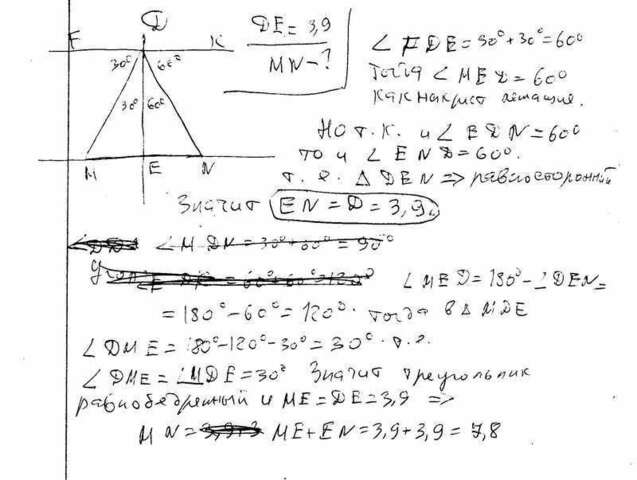 F D K
30° 60°
30° 60°
M E N
DE = 3,9
MN - ?
∠ FDE = 30° + 30° = 60°
Тогда ∠ MED = 60°
как накрест лежащие.
Но т.к. и ∠ EDN = 60°
то и ∠ END = 60°.
т.е. Δ DEN => равносторонний
Значит EN = D = 3,9.
∠ MDN = 30° + 60° = 90°
∠ MED = 180° - ∠DEN =
= 180° - 60° = 120° . тогда в Δ MDE
∠ DME = 180° - 120° - 30° = 30° т.е.
∠ DME = ∠MDE = 30° Значит треугольник
равнобедренный и ME = DE = 3,9 =>
MN = ME + EN = 3,9 + 3,9 = 7,8